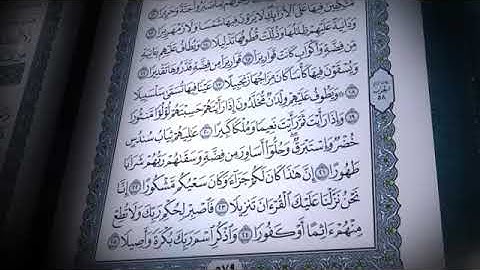 مُّتَّكِـِٔينَ فِيهَا عَلَى ٱلْأَرَآئِكِ لَا يَرَوْنَ فِيهَا شَمْسًا وَلَا زَمْهَرِيرًا ١٣
وَدَانِيَةً عَلَيْهِمْ ظِلَٰلُهَا وَذُلِّلَتْ قُطُوفُهَا تَذْلِيلًا ١٤ وَيُطَافُ عَلَيْهِم بِـَٔانِيَةٍ
مِّن فِضَّةٍ وَأَكْوَابٍ كَانَتْ قَوَارِيرَا۠ ١٥ قَوَارِيرَا۟ مِن فِضَّةٍ قَدَّرُوهَا تَقْدِيرًا ١٦
وَيُسْقَوْنَ فِيهَا كَأْسًا كَانَ مِزَاجُهَا زَنجَبِيلًا ١٧ عَيْنًا فِيهَا تُسَمَّىٰ سَلْسَبِيلًا
١٨ وَيَطُوفُ عَلَيْهِمْ وِلْدَٰنٌ مُّخَلَّدُونَ إِذَا رَأَيْتَهُمْ حَسِبْتَهُمْ لُؤْلُؤًا مَّنثُورًا
١٩ وَإِذَا رَأَيْتَ ثَمَّ رَأَيْتَ نَعِيمًا وَمُلْكًا كَبِيرًا ٢٠ عَٰلِيَهُمْ ثِيَابُ سُندُسٍ
خُضْرٌ وَإِسْتَبْرَقٌ وَحُلُّوٓا۟ أَسَاوِرَ مِن فِضَّةٍ وَسَقَىٰهُمْ رَبُّهُمْ شَرَابًا
طَهُورًا ٢١ إِنَّ هَٰذَا كَانَ لَكُمْ جَزَآءً وَكَانَ سَعْيُكُم مَّشْكُورًا ٢٢ إِنَّا
نَحْنُ نَزَّلْنَا عَلَيْكَ ٱلْقُرْءَانَ تَنزِيلًا ٢٣ فَٱصْبِرْ لِحُكْمِ رَبِّكَ وَلَا تُطِعْ
مِنْهُمْ ءَاثِمًا أَوْ كَفُورًا ٢٤ وَٱذْكُرِ ٱسْمَ رَبِّكَ بُكْرَةً وَأَصِيلًا ٢٥
٥٧٩
٥٨